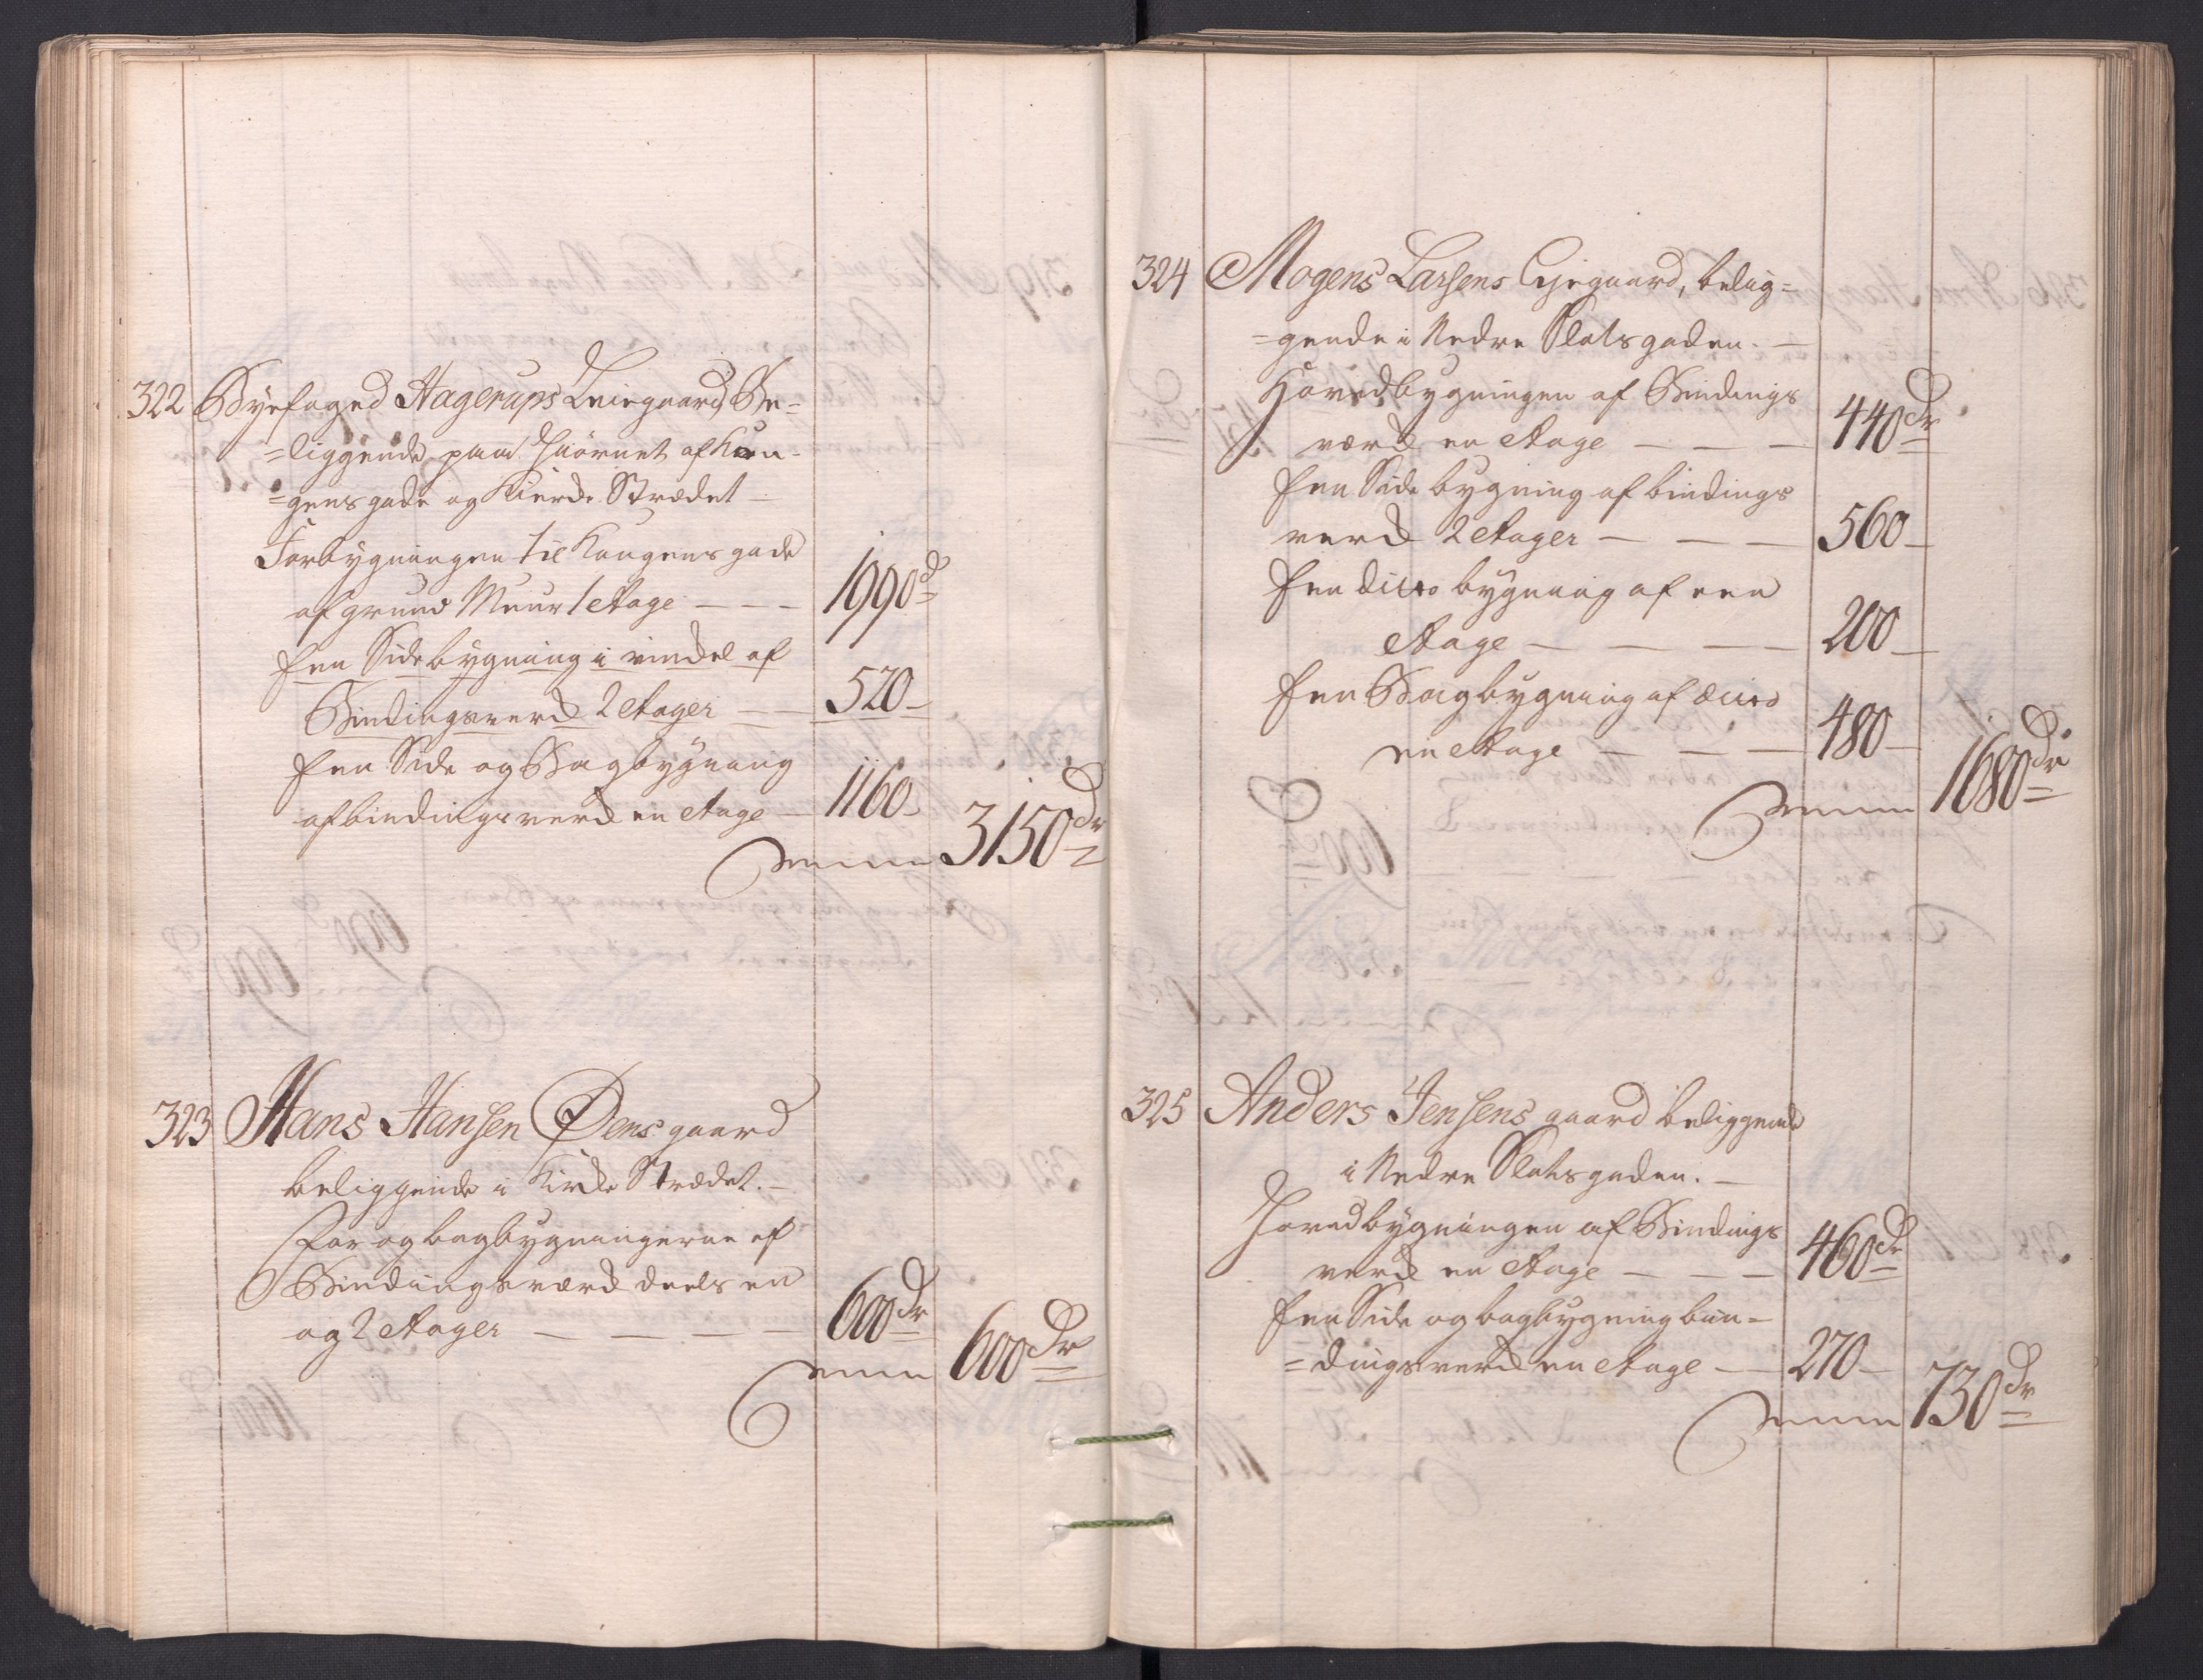 322 Byefoged Hagerups Leiegaard, Be=
=liggende paa Hiørnet af Kon-
=gens gade og Kirke Strædet
Forbygningen til Kongens gade
af grund Muur 1 Etage — — — 1090 d
Een Side bygning i vindel af
Bindingsverk 2 Etager — 520 —
Een Side og Bagbygning
af bindingsverk en Etage — 1160 —
Summa 3150 Dr
323 Hans Hansen Øens gaard
beliggende i Kirke Strædet. —
For og bagbygningerne af
Bindingsværk deels en
og 2 Etager — — — — 600 Dr
Summa 600 Dr
324 Mogens Larsens Ejegaard, belig=
=gende i Nedre Slotsgaden. —
Hovedbygningen af Bindings
værk en Etage — — — 440 Dr
Een Side bygning af bindings
verk 2 Etager — — — 560 —
Een dito bygning af een
Etage — — — — 200 —
Een Bagbygning af dito
en Etage — — — 480 —
Summa 1680 Dr
325 Anders Jensens gaard beliggende
i Nedre Slotsgaden. —
Hovedbygningen af Bindings
verk en Etage — — — 460 Dr
Een Side og bagbygning bin=
=dingsverk en Etage — 270 —
Summa 730 Dr